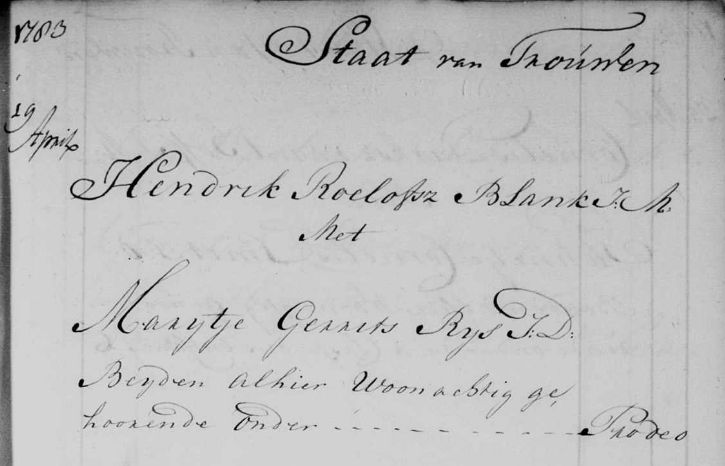 1783
Staat van Trouwen
19
April
Hendrik Roelofsz Blank J: M:
Met
Marytje Gerrits Rys J: D:
Beyden alhier Woonachtig ge,
hoorende onder - - - - - - - - - Prodeo